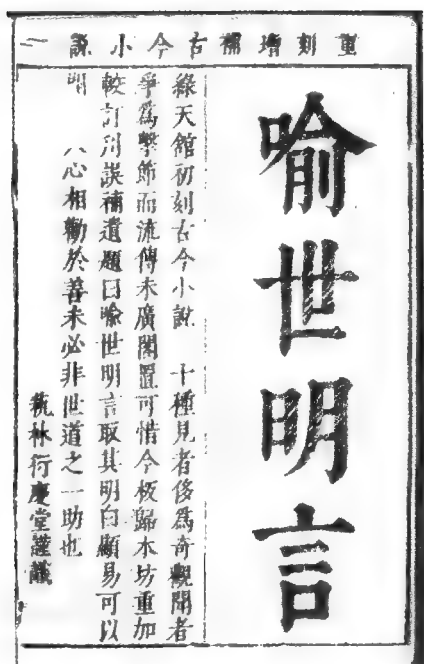 重刻增補古今小說
喻世明言
綠天館初刻古今小說十種見者侈爲奇觀聞者
爭爲擊節而流傳未廣閣置可惜今板歸本坊重加
較訂刊誤補遺題曰喻世明言取其明白顯易可以
人心相勸於善未必非世道之一助也
藝林衍慶堂謹識